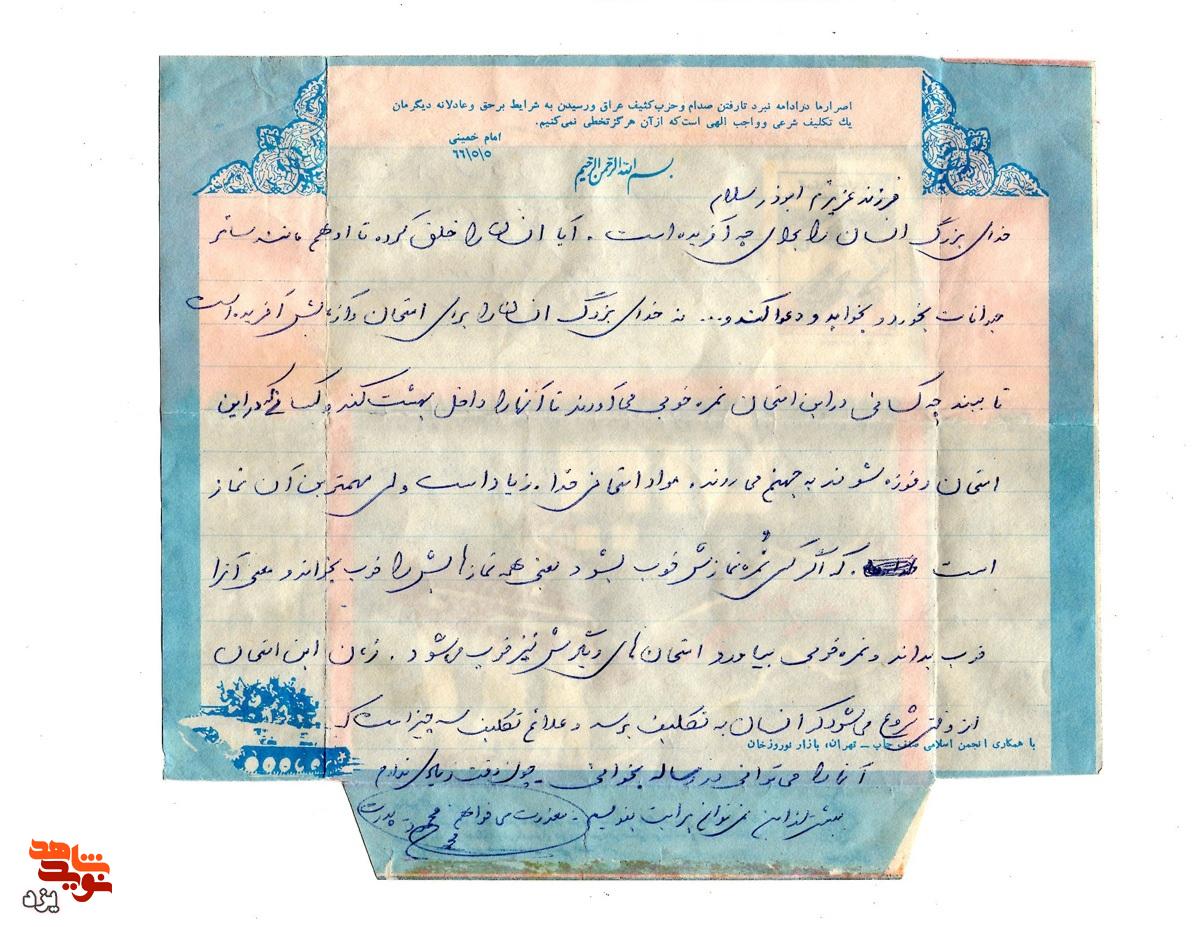 اصرارما درادامه نبرد تارفتن صدام وحزب کثیف عراق ورسیدن به شرایط برحق وعادلانه دیگرمان
یك تکلیف شرعی وواجب الهی است‌که ازآن هرگزتخطی نمی‌کنیم.
امام خمینی
۶۶/۵/۵
بسم الله الرحمن الرحیم
فرزند عزیزم ابوذر سلام
خدای بزرگ انسان را برای چه آفریده است. آیا انسان را خلق کرده تا او هم مانند سایر
حیوانات بخورد و بخوابد و دعوا کند و... نه خدای بزرگ انسان را برای امتحان و آزمایش آفریده است
تا ببیند چه کسانی در این امتحان نمره خوبی می‌آورند تا آنها را داخل بهشت کند و کسانی که در این
امتحان رفوزه شوند به جهنم می‌روند. مواد امتحانی خدا زیاد است ولی مهمترین آن نماز
است که اگر کسی نمره نمازش خوب بشود یعنی همه نمازهایش را خوب بخواند و معنی آنرا
خوب بداند و نمره خوبی بیاورد امتحان‌های دیگرش نیز خوب می‌شود. زمان این امتحان
از وقتی شروع می‌شود که انسان به تکلیف برسد و علائم تکلیف سه چیز است که
با همکاری انجمن اسلامی صنف چاپ – تهران، بازار نوروزخان
آنها را می‌توانی در رساله بخوانی - چون وقت زیادی ندارم
بیش از این نمی‌توانم برایت بنویسم - معذرت می‌خواهم پدرت
نوید شاهد
یزد